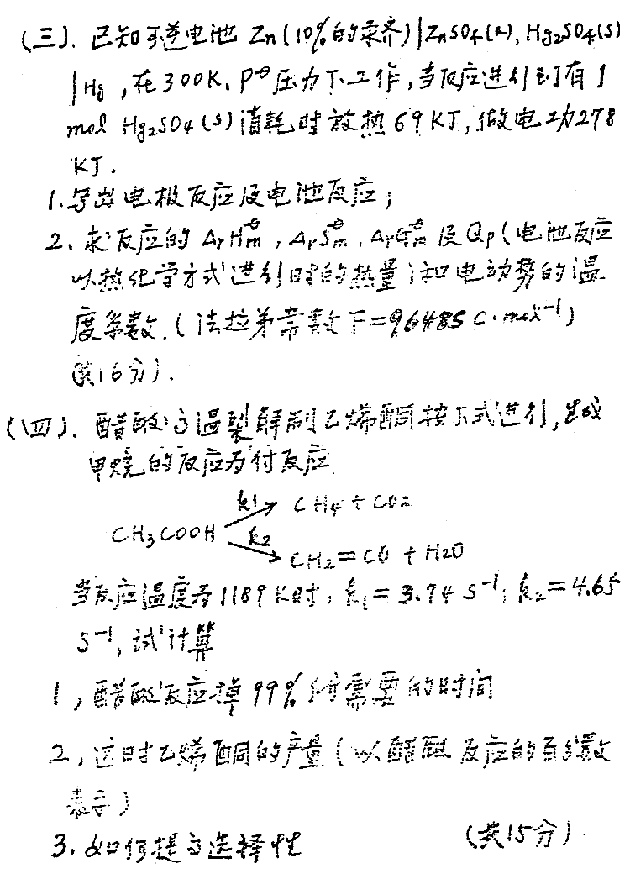 (三). 已知可逆电池 Zn(10%的汞齐)|ZnSO4(a), Hg2SO4(s)
|Hg, 在300K, P⊖压力下工作, 当反应进行到有1
mol Hg2SO4(s)消耗时放热69KJ, 做电功278
KJ.
1.写出电极反应及电池反应;
2. 求反应的 ΔrHm⊖, ΔrSm⊖, ΔrGm⊖ 及Qp(电池反应
以热化学方式进行时的热量)和电动势的温
度系数. (法拉第常数F=96485 C·mol-1)
(共16分).
(四). 醋酸高温裂解制乙烯酮按下式进行, 生成
甲烷的反应为付反应
k1 CH4 + CO2
CH3COOH k2
CH2=CO + H2O
当反应温度为1189K时, k1=3.74 S-1, k2=4.65
S-1, 试计算
1, 醋酸反应掉99%所需要的时间
2, 这时乙烯酮的产量(以醋酸反应的百分数
表示)
3. 如何提高选择性 (共15分)